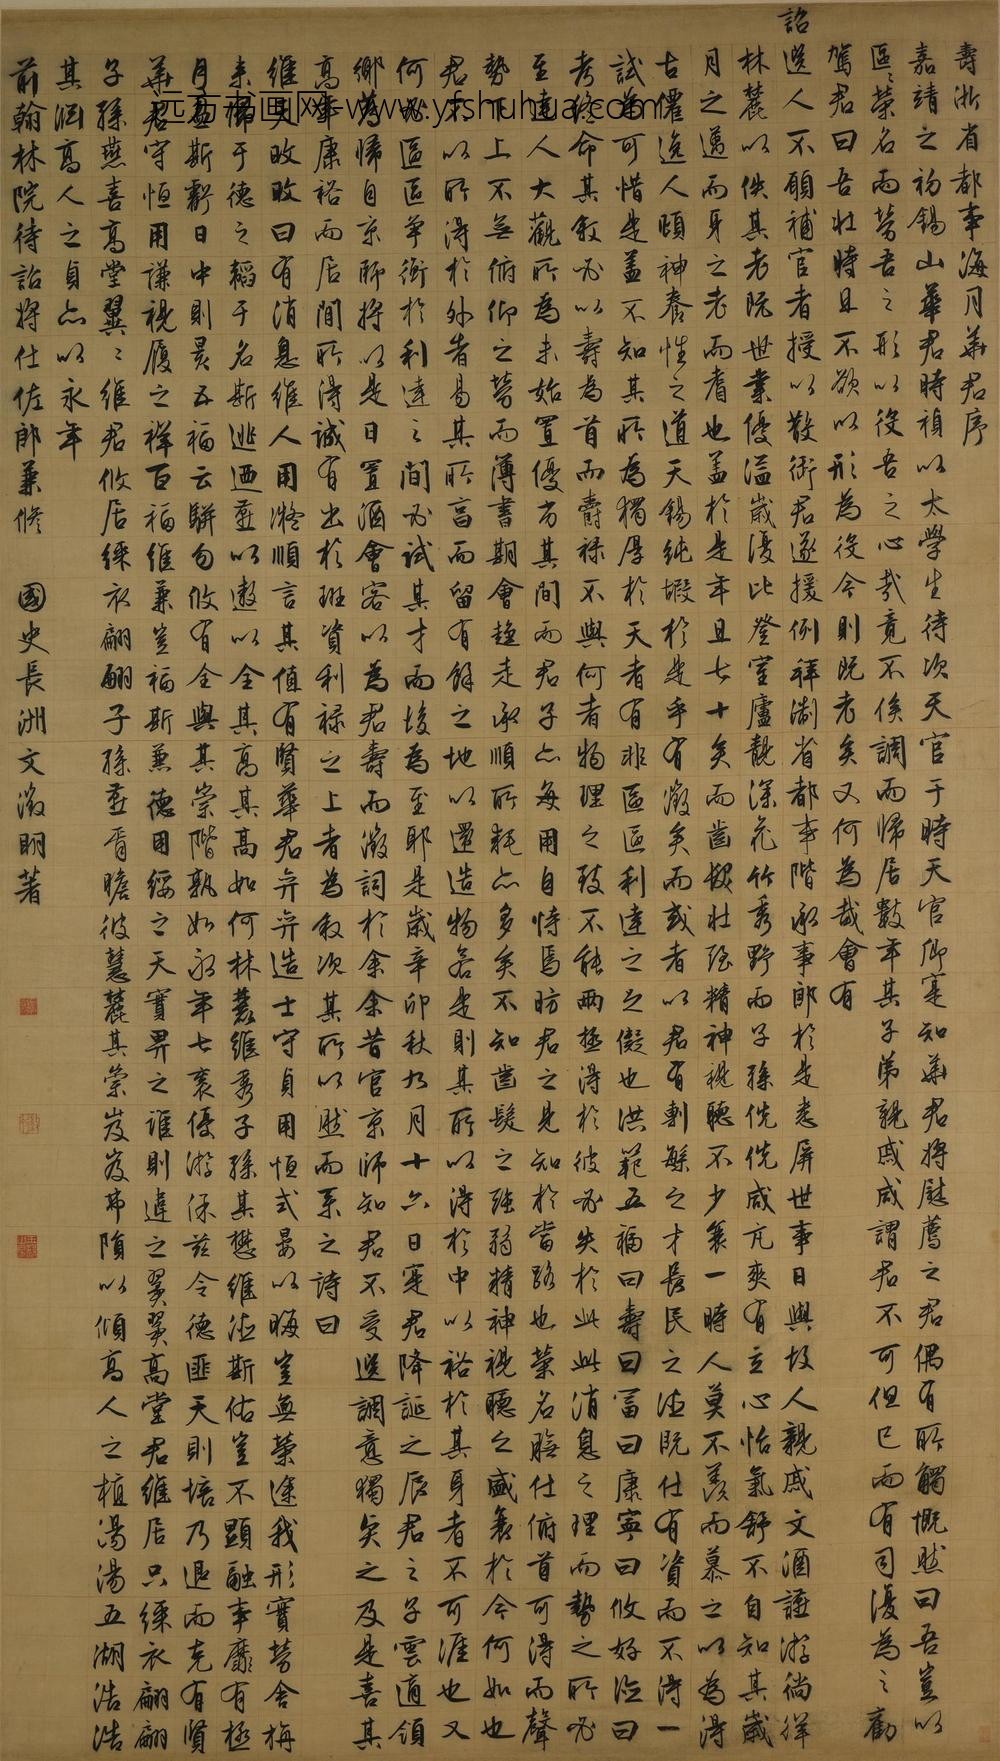 壽浙省都事海月華君序
嘉靖之初錫山華君時禎以太學生待次天官于時天官卿寔知華君將慰薦之君偶有所觸慨然曰吾豈以
區區榮名而勞吾之形以役吾之心哉竟不俟調而歸居數年其子弟親戚咸謂君不可但已而有司復為之勸
駕君曰吾壯時且不欲以形為役今則既老矣又何為哉會有
詔選人不願補官者授以散銜君遂援例拜浙省都事階承事郎於是悉屏世事日與故人親戚文酒讌游徜徉
林麓以佚其老既世業優溢歲復比登室廬靚深花竹秀野而子孫侁侁咸亢爽有立心怡氣舒不自知其歲
月之邁而身之老而耆也蓋於是年且七十矣而齒髮壯強精神視聽不少衰一時人莫不羨而慕之以為得
古僊逸人頤神養性之道天錫純嘏於是乎有徵矣而或者以君有剸繁之才長民之德既仕有資而不得一
試為可惜是蓋不知其所為獨厚於天者有非區區利達之之儗也洪範五福曰壽曰富曰康寧曰攸好德曰
考終命其敘必以壽為首而爵祿不與何者物理之致不能兩極得於彼必失於此此消息之理而勢之所必
至達人大觀所為未始置優劣其間而君子亦每用自恃焉昉君之見知於當路也榮名膴仕俯首可得而聲
勢下上不無俯仰之勞而薄書期會趨走承順所耗亦多矣不知齒髮之強弱精神視聽之盛衰於今何如也
君不以所得於外者易其所享而留有餘之地以還造物若是則其所以得於中以裕於其身者不可涯也又
何必區區爭衡於利達之間必試其才而後為至耶是歲辛卯秋九月十六日寔君降誕之辰君之子雲適領
鄉薦歸自京師將以是日置酒會客以為君壽而徵詞於余余昔官京師知君不受選調意獨矣之及是喜其
高年康裕而居閒所得誠有出於班資利祿之上者為敘次其所以然而系之詩曰
維天畋畋曰有消息維人用將順言其值有賢華君弁弁造士守貞用恒式晏以晦豈無榮途我形實勞舍梅
未傭于德之韜于名斯逃迺壺以遨以全其高其高如何林麓維秀子孫其懋維德斯佑豈不顯融事靡有極
月盈斯虧日中則昃五福云駢匆攸有全與其崇階孰如永年七袠優游係茲令德匪天則培乃退而克有賢
華君守恒用謙視履之祥百福維兼豈福斯兼德用綏之天實畀之誰則違之翼翼高堂君維居只綵衣翩翩
子孫燕喜高堂翼翼維君攸居綵衣翩翩子孫壺胥瞻彼慧麓其崇岌岌弗隕以傾高人之植湯湯五湖浩浩
其淵高人之貞亦以永年
前翰林院待詔將仕佐郎兼修國史長洲文徵明著
远方书画网-www.yfshuhua.com